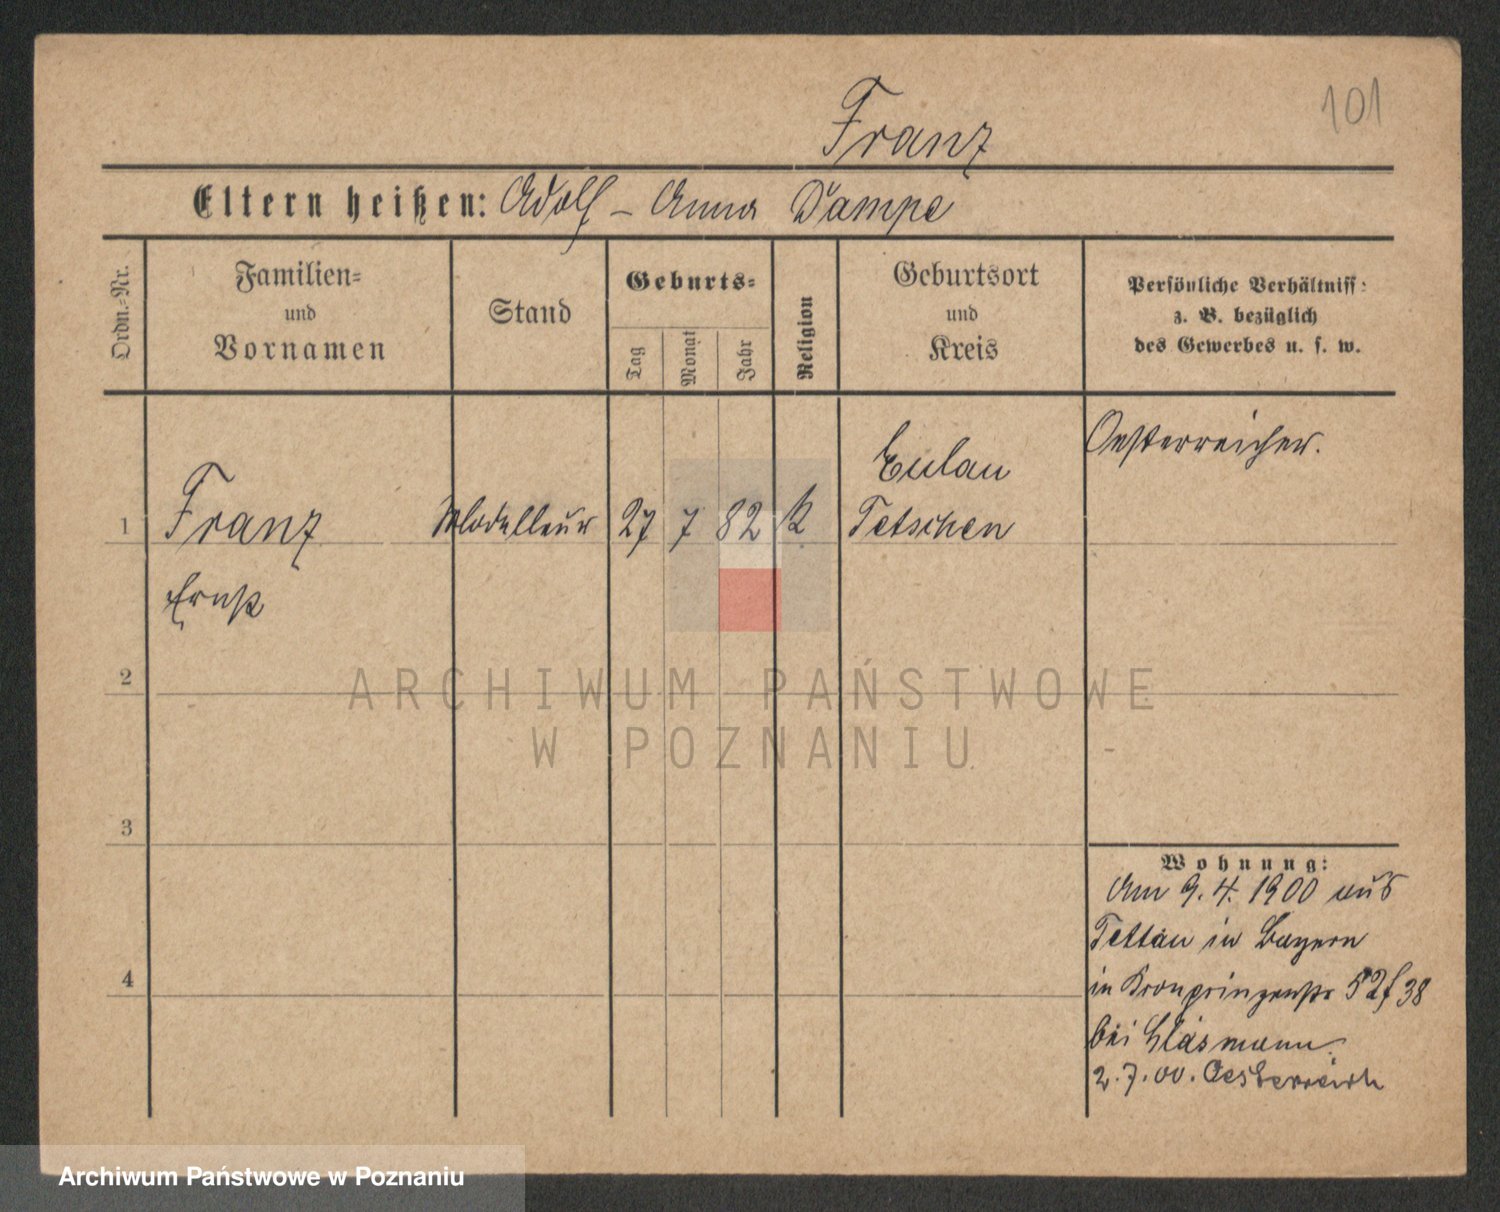 101
Franz
Eltern heißen: Adolf - Anna Dampe
Ordn.-Nr.
Familien-
und
Vornamen
Stand
Geburts-
Tag
Monat
Jahr
Religion
Geburtsort
und
Kreis
Persönliche Verhältniss:
z. B. bezüglich
des Gewerbes u. s. w.
Oesterreicher.
Eulau
1 Franz Modelleur 27 7 82 k Tetschen
Ernst
2
ARCHIWUM PAŃSTWOWE
W POZNANIU
3
Wohnung:
Am 9.4.1900 aus
Tettau in Bayern
4
in Kronprinzenstr 52f 38
bei Glasmann.
2.7.00. Oesterreich
Archiwum Państwowe w Poznaniu